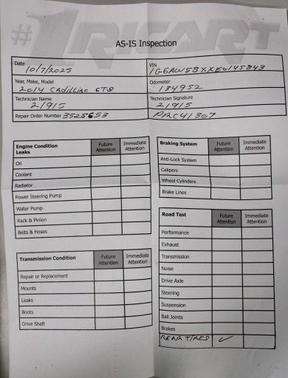 #1 RIVARD
AS-IS Inspection
Date 10/7/2025
VIN
Year, Make, Model
2014 Cadillac CTS
Odometer
134952
Technician Name
21915
Technician Signature
21915
Repair Order Number 3525653
PRC41307
Engine Condition
Leaks
Future Attention
Immediate Attention
Oil
Coolant
Radiator
Power Steering Pump
Water Pump
Rack & Pinion
Belts & Hoses
Transmission Condition
Future Attention
Immediate Attention
Repair or Replacement
Mounts
Leaks
Boots
Drive Shaft
Braking System
Future Attention
Immediate Attention
Anti-Lock System
Calipers
Wheel Cylinders
Brake Lines
Road Test
Future Attention
Immediate Attention
Performance
Exhaust
Transmission
Noise
Drive Axle
Steering
Suspension
Ball Joints
Brakes
REAR TIRES ✓